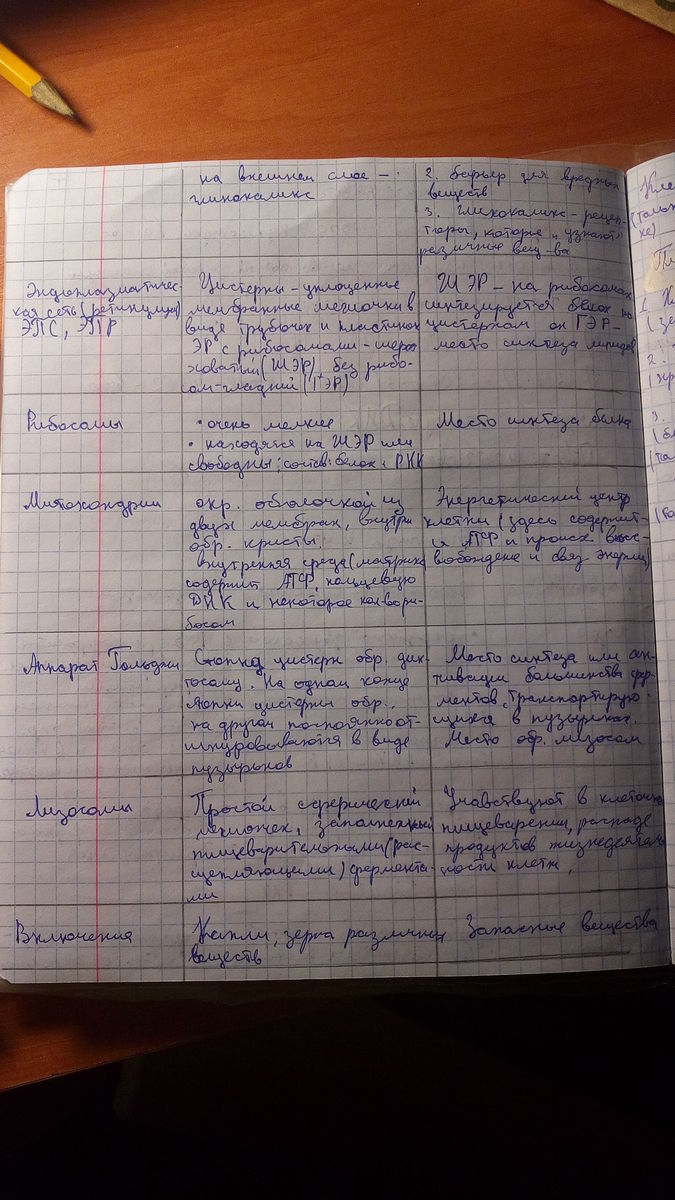 на внешнем слое –
гликокаликс
2. барьер для вредных
веществ
3. гликокаликс – рецеп-
торы, которые „узнают"
различные вещ-ва
Эндоплазматичес-
кая сеть (ретикулум)
ЭПС, ЭПР
Цистерны – уплощенные
мембранные мешочки в
виде трубочек и пластинок
ЭР с рибосомами – шеро-
ховатый (ШЭР), без рибо-
сом – гладкий (ГЭР)
ШЭР – на рибосомах
синтезируется белок по
цистернам он ГЭР –
место синтеза липидов
Рибосомы
• очень мелкие
• находятся на ШЭР или
свободны; состав: белок и РНК
Место синтеза белка
Митохондрии
окр. оболочкой из
двух мембран, внутри
обр. кристы.
внутренняя среда (матрикс)
содержит АТФ, кольцевую
ДНК и некоторое кол-во ри-
босом
Энергетический центр
клетки (здесь содержит-
ся АТФ и происх.
высвобождение и связ. энергии)
Аппарат Гольджи
Стопка цистерн обр. дик-
тосому. На одном конце
стопки цистерны обр.,
на другом постоянно от-
шнуровываются в виде
пузырьков
Место синтеза или ак-
тивации большинства фер-
ментов, транспортирую-
щихся в пузырьках.
Место обр. лизосом
Лизосомы
Простой сферический
мешочек, заполненный
пищеварительными (рас-
щепляющими) фермента-
ми
Учавствуют в клеточном
пищеварении, распаде
продуктов жизнедеятель
ности клетки.
Включения
Капли, зерна различных
веществ
Запасные вещества
Кле
(толь
ке)
1.
2.
3.